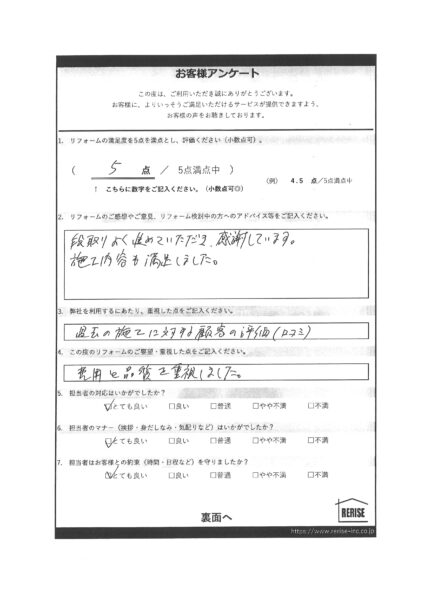 お客様アンケート
この度は、ご利用いただき誠にありがとうございます。
お客様に、よりいっそうご満足いただけるサービスが提供できますよう、
お客様の声をお聴きしております。
1. リフォームの満足度を5点を満点とし、評価ください（小数点可）。
（ 5 点 ／ 5点満点中 ）
（例） 4.5 点／5点満点中
↑ こちらに数字をご記入ください。（小数点可◎）
2. リフォームのご感想やご意見、リフォーム検討中の方へのアドバイス等をご記入ください。
段取りよく進めていただき、感謝しています。
施工内容も満足しました。
3. 弊社を利用するにあたり、重視した点をご記入ください。
過去の施工に対する顧客の評価(口コミ)
4. この度のリフォームのご要望・重視した点をご記入ください。
費用と品質を重視しました。
5. 担当者の対応はいかがでしたか？
☑とても良い □良い □普通 □やや不満 □不満
6. 担当者のマナー（挨拶・身だしなみ・気配りなど）はいかがでしたか？
☑とても良い □良い □普通 □やや不満 □不満
7. 担当者はお客様との約束（時間・日程など）を守りましたか？
☑とても良い □良い □普通 □やや不満 □不満
裏面へ
RERISE
https://www.rerise-inc.co.jp